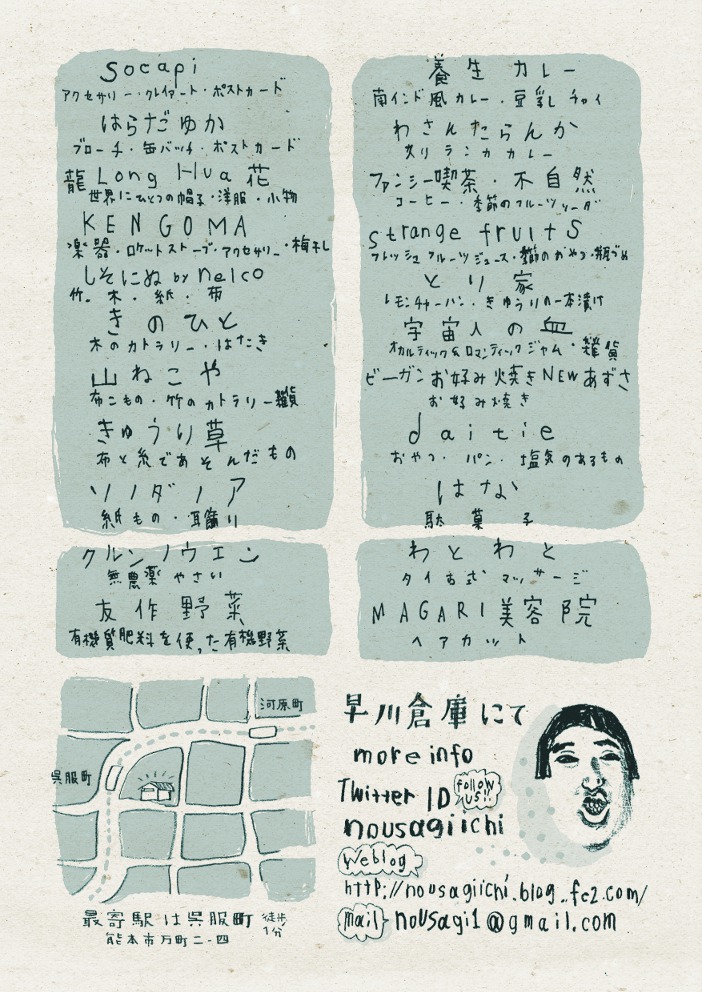 Socapi
アクセサリー・クレイアート・ポストカード
はらだゆか
ブローチ・缶バッチ・ポストカード
龍 Long Hua 花
世界にひとつの帽子・洋服・小物
KENGOMA
楽器・ロケットストーブ・アクセサリー・梅干し
しそにぬ by nelco
竹。木・紙・布
きのひと
木のカトラリー・はたき
山ねこや
布こもの・竹のカトラリー雑貨
きゅうり草
布と糸であそんだもの
ソノダノア
紙もの・耳飾り
クルンノウエン
無農薬やさい
友作野菜
有機質肥料を使った有機野菜
養生カレー
南インド風カレー・豆乳チャイ
わさんたらんか
スリランカカレー
ファンシー喫茶・不自然
コーヒー・季節のフルーツソーダ
strange fruits
フレッシュフルーツジュース・季節のおやつ・瓶づめ
とり家
レモンチャーハン・きゅうりの一本漬け
宇宙人の血
オカルティック&ロマンティックジャム・雑貨
ビーガンお好み焼きNEWあずさ
お好み焼き
daitie
おやつ・パン・塩気のあるもの
はな
駄菓子
わとわと
タイ古式マッサージ
MAGARI美容院
ヘアカット
河原町
呉服町
最寄駅は呉服町 徒歩1分
熊本市万町二-四
早川倉庫にて
more info
Twitter ID follow us!!
nousagiichi
weblog
http://nousagiichi.blog.fc2.com/
mail nousagi1@gmail.com